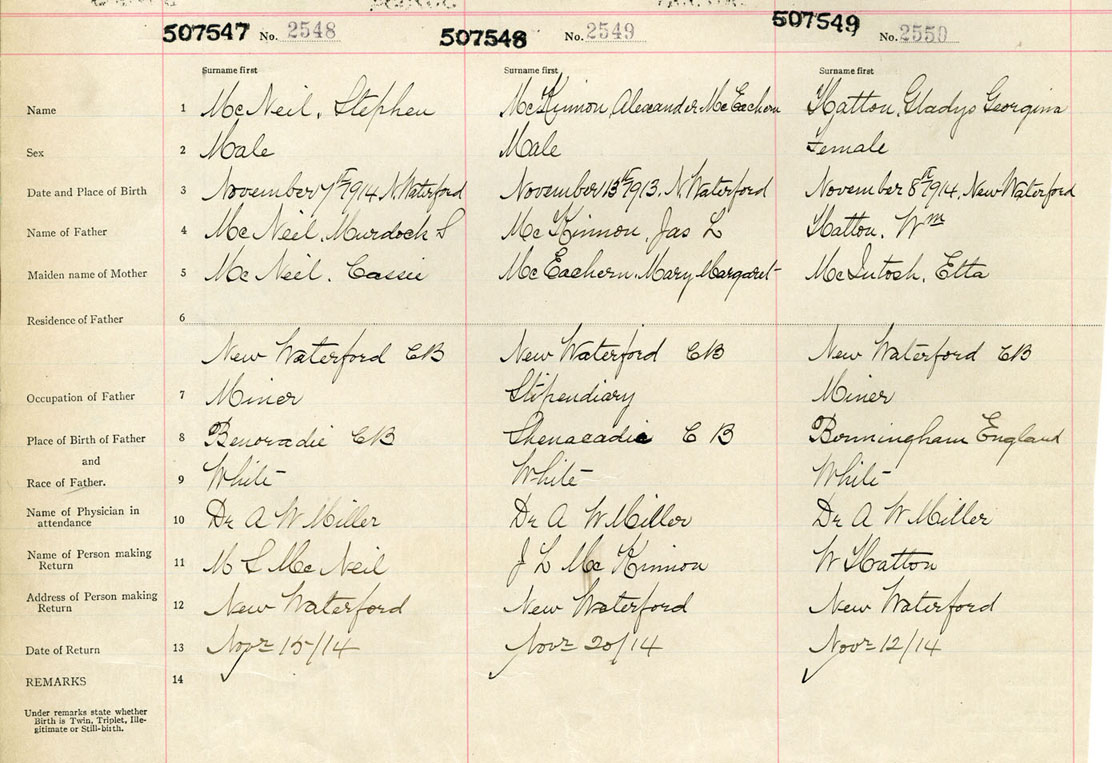 507547 No. 2548 507548 No. 2549 507549 No. 2550
Surname first Surname first Surname first
Name 1 McNeil. Stephen McKinnon, Alexander McEachern Hatton. Gladys Georgina
Sex 2 Male Male Female
Date and Place of Birth 3 November 7th 1914 N. Waterford November 13th 1913. N. Waterford November 8th 1914. New Waterford
Name of Father 4 McNeil. Murdoch S McKinnon, Jas L Hatton. Wm
Maiden name of Mother 5 McNeil. Cassie McEachern. Mary Margaret McIntosh. Etta
Residence of Father 6
New Waterford CB New Waterford CB New Waterford CB
Occupation of Father 7 Miner Stipendiary Miner
Place of Birth of Father 8 CB Shenacadie CB Bormingham England
and
Race of Father. 9 White White White
Name of Physician in
attendance 10 Dr A W Miller Dr A W Miller Dr A W Miller
Name of Person making
Return 11 M S McNeil J L McKinnon W Hatton
Address of Person making
Return 12 New Waterford New Waterford New Waterford
Date of Return 13 Novr 15/14 Novr 20/14 Novr 12/14
REMARKS 14
Under remarks state whether
Birth is Twin, Triplet, Ille-
gitimate or Still-birth.